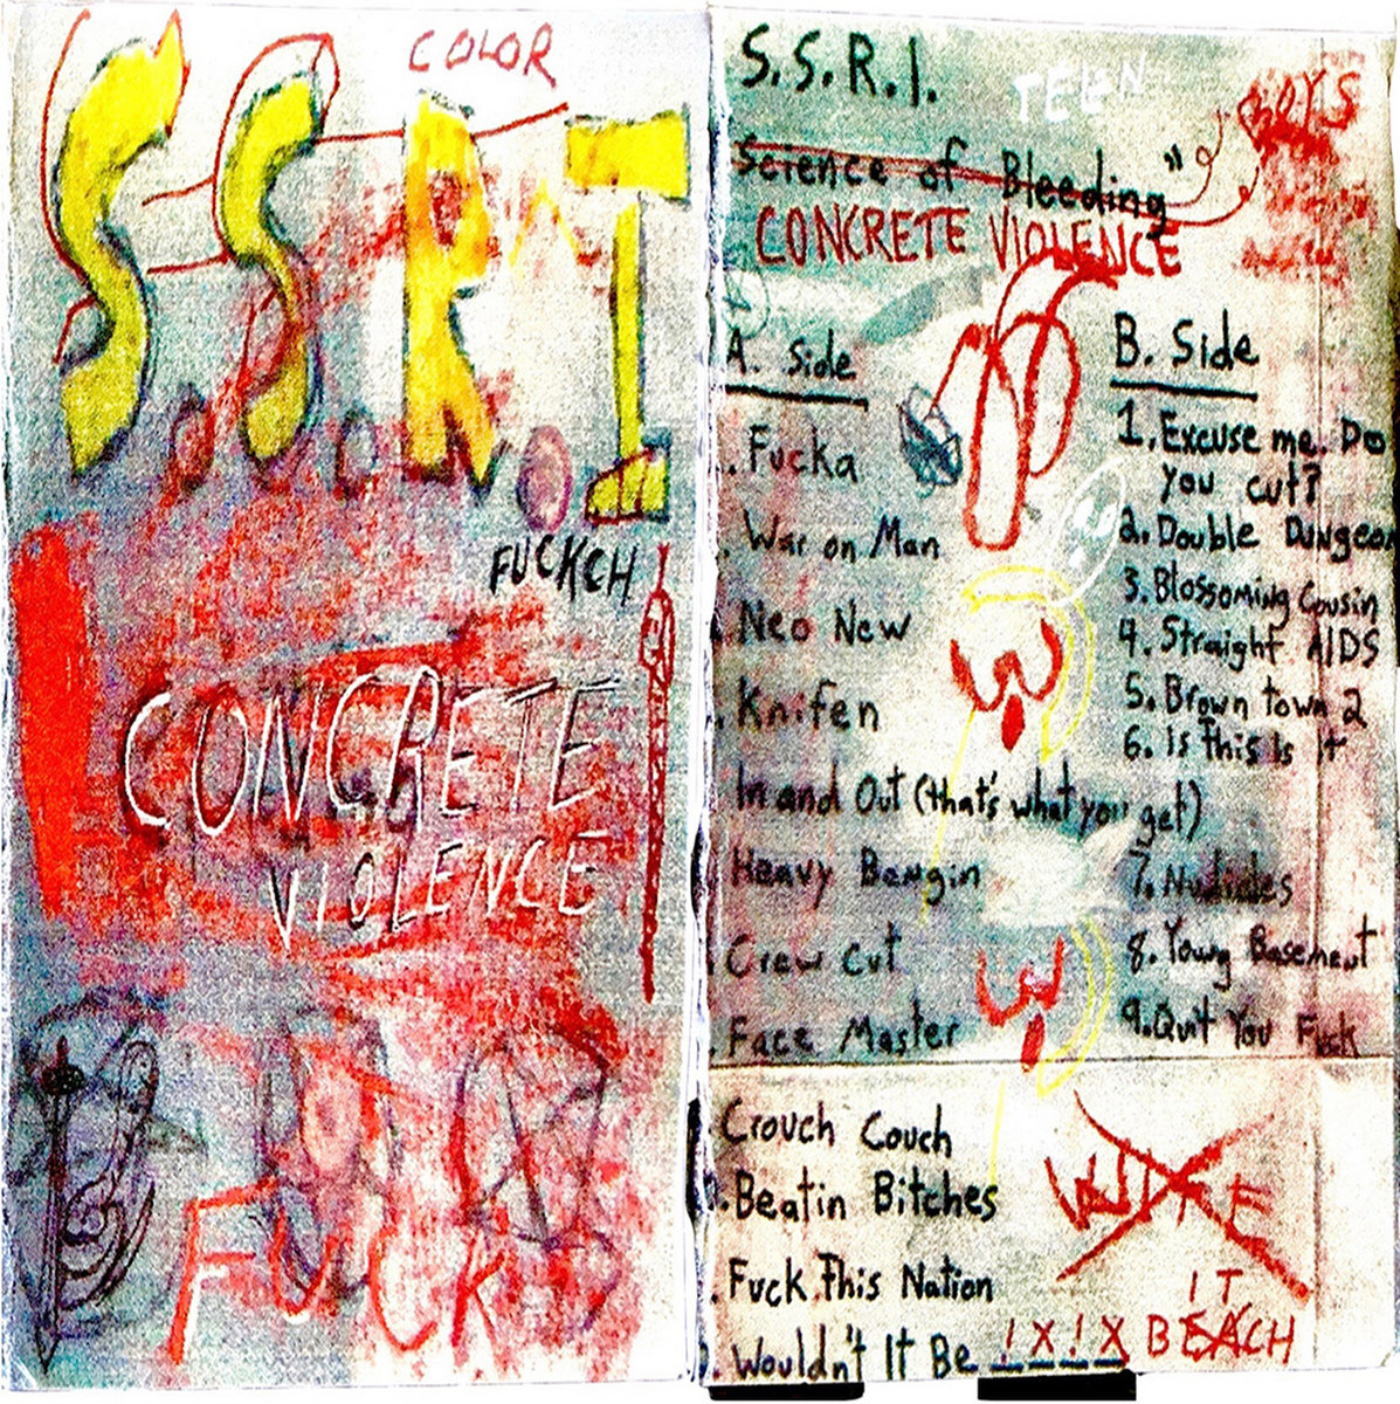 COLOR
S.S.R.I
FUCKCH
CONCRETE
VIOLENCE
FUCK
S.S.R.I.
TEEN
BOYS
Science of Bleeding"
CONCRETE VIOLENCE
A. Side
Fucka
War on Man
Neo New
Knifen
In and Out (that's what you get)
Heavy Bangin
Crew Cut
Face Master
Crouch Couch
Beatin Bitches
Fuck This Nation
Wouldn't It Be !X!X BEACH
IT
B. Side
1. Excuse me. Do
you cut?
2. Double Dungeon
3. Blossoming Cousin
4. Straight AIDS
5. Brown town 2
6. Is This Is It
7. Nudides
8. Young Basement
9. Quit You Fuck